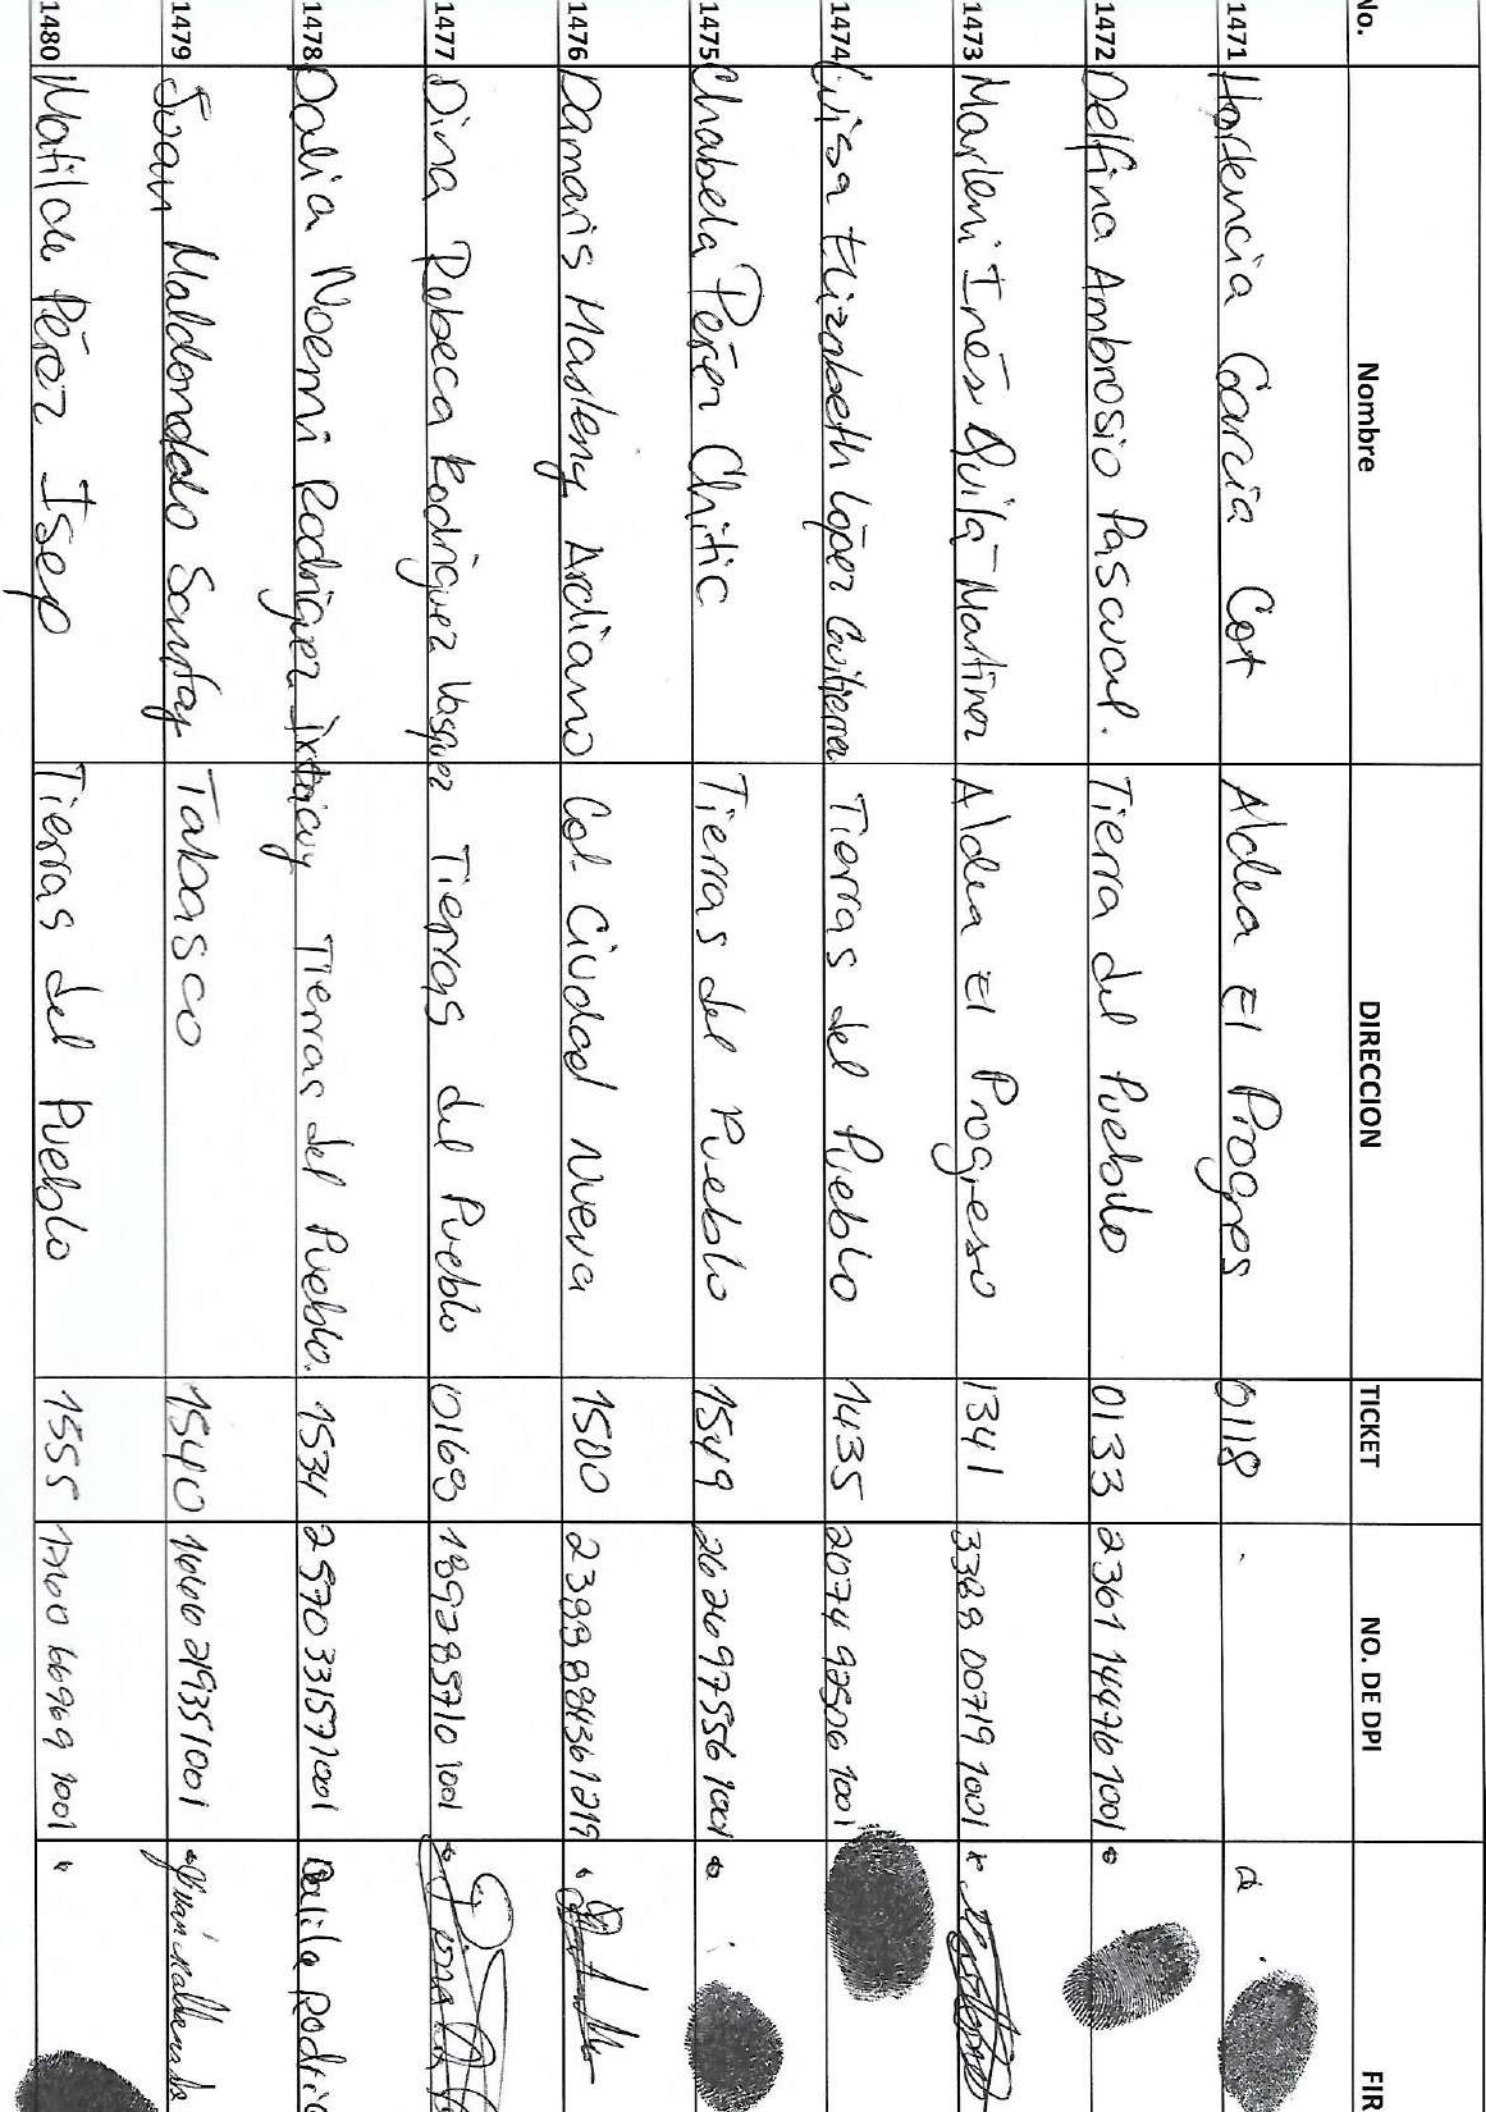 No. Nombre DIRECCION TICKET NO. DE DPI FIR
1471 Hortencia García Cot Aldea El Progres 0118
1472 Delfina Ambrosio Pascual. Tierra del Pueblo 0133 2361 14476 1001
1473 Marleni Inés Quila Martinez Aldea El Progreso 1341 3388 00719 1001
1474 Luisa Elizabeth López Guitierrez Tierras del Pueblo 1435 2074 92506 1001
1475 Chabela Pérez Chitic Tierras del Pueblo 1549 2626 97556 1001
1476 Damaris Marleny Ardiano Col. Ciudad Nueva 1500 2388 88436 1219
1477 Dina Rebeca Rodriguez Vasquez Tierras del Pueblo 0168 1892 85710 1001
1478 Dalia Noemi Rodriguez Tierras del Pueblo. 1534 2570 33157 1001
1479 Juan Maldonado Santay Tabasco 1540 1666 21935 1001
1480 Matilde Pérez Isep Tierras del Pueblo 1555 66969 1001